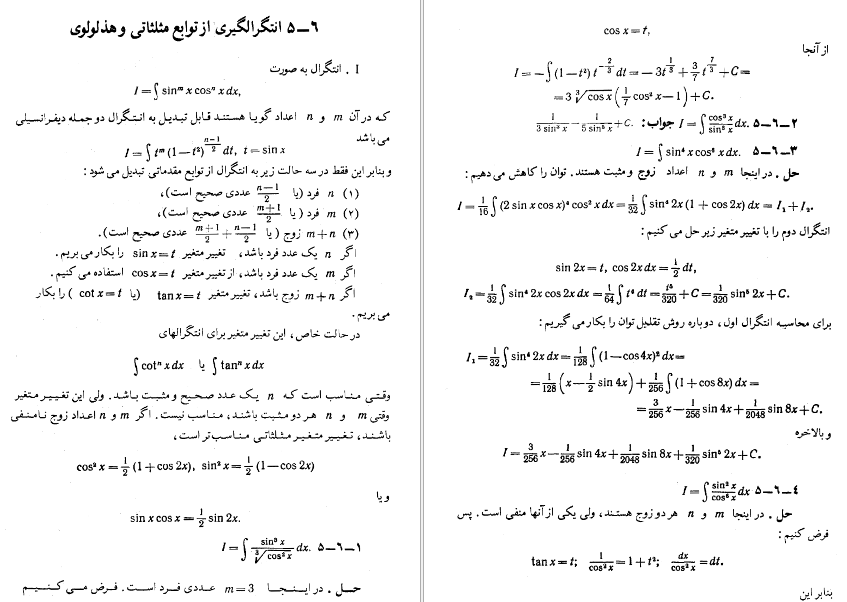 ۵ــ۶ انتگرالگیری از توابع مثلثاتی و هذلولوی
I . انتگرال به صورت
I = ∫ sinᵐ x cosⁿ x dx,
که در آن m و n اعداد گویا هستند قابل تبدیل به انتگرال دوجمله دیفرانسیلی
می باشد
I = ∫ tᵐ (1 − t²)^((n−1)/2) dt, t = sin x
و بنابر این فقط در سه حالت زیر به انتگرال از توابع مقدماتی تبدیل می شود :
(۱) n فرد (یا (n−1)/2 عددی صحیح است)،
(۲) m فرد (یا (m+1)/2 عددی صحیح است)،
(۳) m+n زوج (یا (m+1)/2 + (n−1)/2 عددی صحیح است).
اگر n یک عدد فرد باشد، تغییر متغیر sin x = t را بکار می بریم .
اگر m یک عدد فرد باشد، از تغییر متغیر cos x = t استفاده می کنیم .
اگر m+n زوج باشد، تغییر متغیر tan x = t (یا cot x = t ) را بکار
می بریم .
در حالت خاص، این تغییر متغیر برای انتگرالهای
∫ cotⁿ x dx یا ∫ tanⁿ x dx
وقتی مناسب است که n یک عدد صحیح و مثبت باشد. ولی این تغییر متغیر
وقتی m و n هر دو مثبت باشند، مناسب نیست. اگر m و n اعداد زوج نامنفی
باشند، تغییر متغیر مثلثاتی مناسب تر است،
cos² x = 1/2 (1 + cos 2x), sin² x = 1/2 (1 − cos 2x)
و یا
sin x cos x = 1/2 sin 2x.
۵ــ۶ــ۱ I = ∫ sin³ x / ∛(cos² x) dx.
حل . در اینجا m = 3 عددی فرد است. فرض می کنیم
cos x = t,
از آنجا
I = −∫ (1 − t²) t^(−2/3) dt = −3t^(1/3) + 3/7 t^(7/3) + C =
= 3 ∛(cos x) (1/7 cos² x − 1) + C.
۵ــ۶ــ۲ I = ∫ cos³ x / sin⁶ x dx. جواب: 1/(3 sin³ x) − 1/(5 sin⁵ x) + C.
۵ــ۶ــ۳ I = ∫ sin⁴ x cos⁶ x dx.
حل . در اینجا m و n اعداد زوج و مثبت هستند. توان را کاهش می دهیم :
I = 1/16 ∫ (2 sin x cos x)⁴ cos² x dx = 1/32 ∫ sin⁴ 2x (1 + cos 2x) dx = I₁ + I₂.
انتگرال دوم را با تغییر متغیر زیر حل می کنیم :
sin 2x = t, cos 2x dx = 1/2 dt,
I₂ = 1/32 ∫ sin⁴ 2x cos 2x dx = 1/64 ∫ t⁴ dt = t⁵/320 + C = 1/320 sin⁵ 2x + C.
برای محاسبه انتگرال اول، دوباره روش تقلیل توان را بکار می گیریم :
I₁ = 1/32 ∫ sin⁴ 2x dx = 1/128 ∫ (1 − cos 4x)² dx =
= 1/128 (x − 1/2 sin 4x) + 1/256 ∫ (1 + cos 8x) dx =
= 3/256 x − 1/256 sin 4x + 1/2048 sin 8x + C.
و بالاخره
I = 3/256 x − 1/256 sin 4x + 1/2048 sin 8x + 1/320 sin⁵ 2x + C.
۵ــ۶ــ۴ I = ∫ sin² x / cos⁶ x dx
حل . در اینجا m و n هر دو زوج هستند، ولی یکی از آنها منفی است . پس
فرض کنیم :
tan x = t; 1/cos² x = 1 + t²; dx/cos² x = dt.
بنابر این